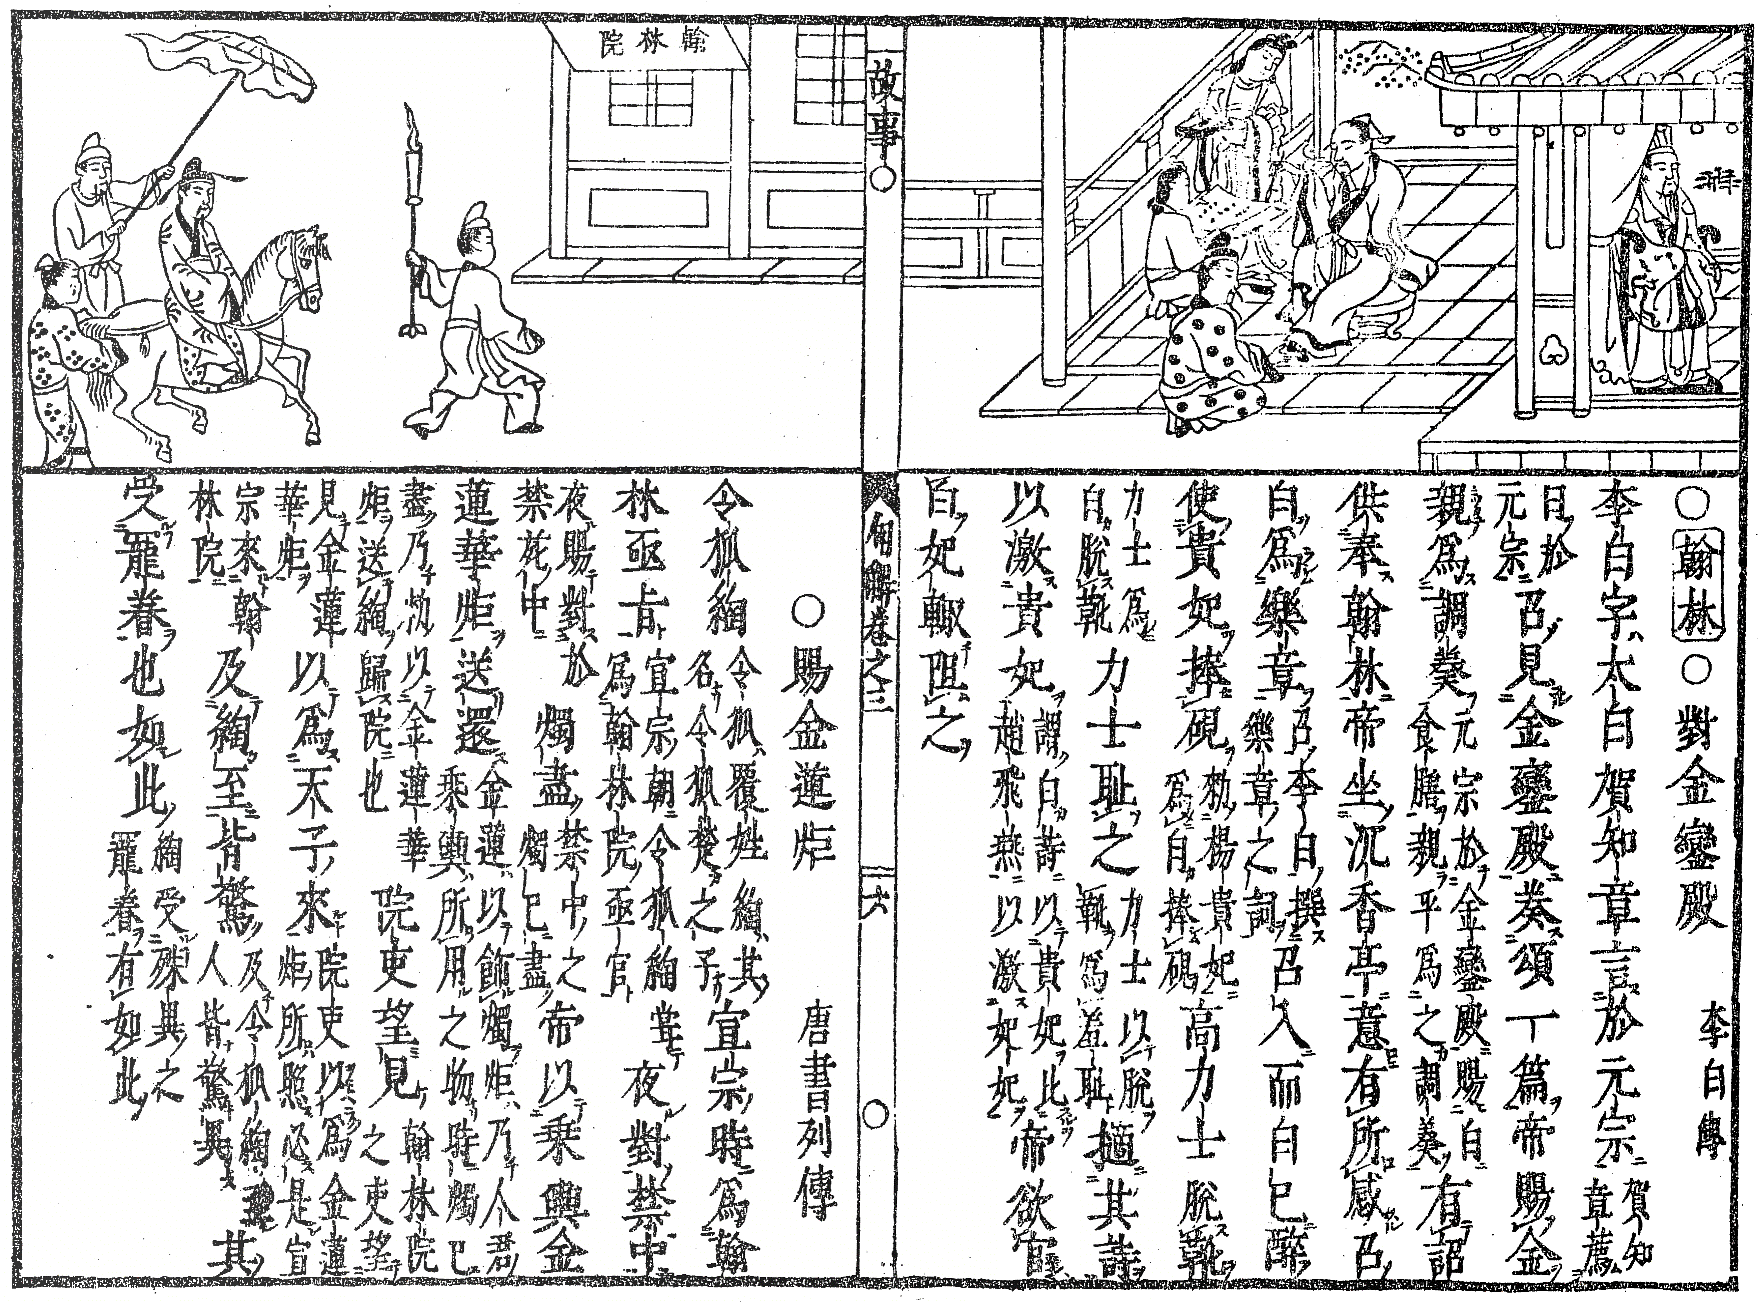 翰林院
故事
○翰林○對金鑾殿　李白傳
李白字太白賀知章言於元宗賀知章薦
白於元宗召見金鑾殿奏頌一篇帝賜食
親為調羹元宗於金鑾殿賜白食膳親手為之調羹有詔
供奉翰林帝坐沉香亭意有所感召
白為樂章召李白撰樂章之詞召入而白已醉
使貴妃捧硯勅楊貴妃為白捧硯高力士脫靴
力士為白脫靴力士恥之力士以脫靴為羞恥擿其詩
以激貴妃謂白詩以貴妃比趙飛燕以激妃帝欲官
白妃輒阻之
句解卷之三
二六
○賜金蓮炬　唐書列傳
令狐綯令狐覆姓綯其名令狐楚之子宣宗時為翰
林亟旨宣宗朝令狐綯為翰林院亟官嘗夜對禁中
夜賜對於禁苑中燭盡禁中之燭已盡帝以乘輿金
蓮華炬送還金蓮以飾燭炬乃人君乘輿所用之物時燭已
盡乃勅以金蓮華炬送綯歸院也院吏望見翰林院之吏望
見金蓮華炬以為天子來院吏以為金蓮炬所照必是宣
宗來翰林院及綯至皆驚及令狐綯至人皆驚異其
受寵眷也如此綯受殊異之寵眷有如此